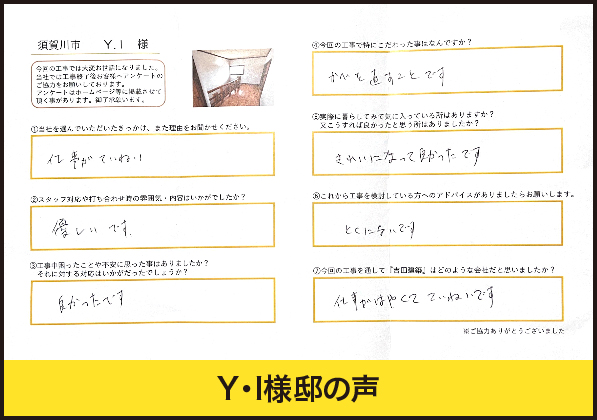 須賀川市 Y.I 様
今回の工事では大変お世話になりました。
当社では工事終了後お客様へアンケートの
ご協力をお願いしております。
アンケートはホームページ等に掲載させて
頂く事があります。御了承願います。
①当社を選んでいただいたきっかけ、また理由をお聞かせください。
仕事がていねい
②スタッフ対応や打ち合わせ時の雰囲気・内容はいかがでしたか?
優しいです。
③工事中困ったことや不安に思った事はありましたか?
それに対する対応はいかがだったでしょうか?
良かったです
④今回の工事で特にこだわった事はなんですか?
かべを直すことです
⑤実際に暮らしてみて気に入っている所はありますか?
又こうすれば良かったと思う所はありましたか?
きれいになって良かったです
⑥これから工事を検討している方へのアドバイスがありましたらお願いします。
とくにないです
⑦今回の工事を通して『吉田建築』はどのような会社だと思いましたか?
仕事がはやくてていねいです
※ご協力ありがとうございました
Y・I様邸の声